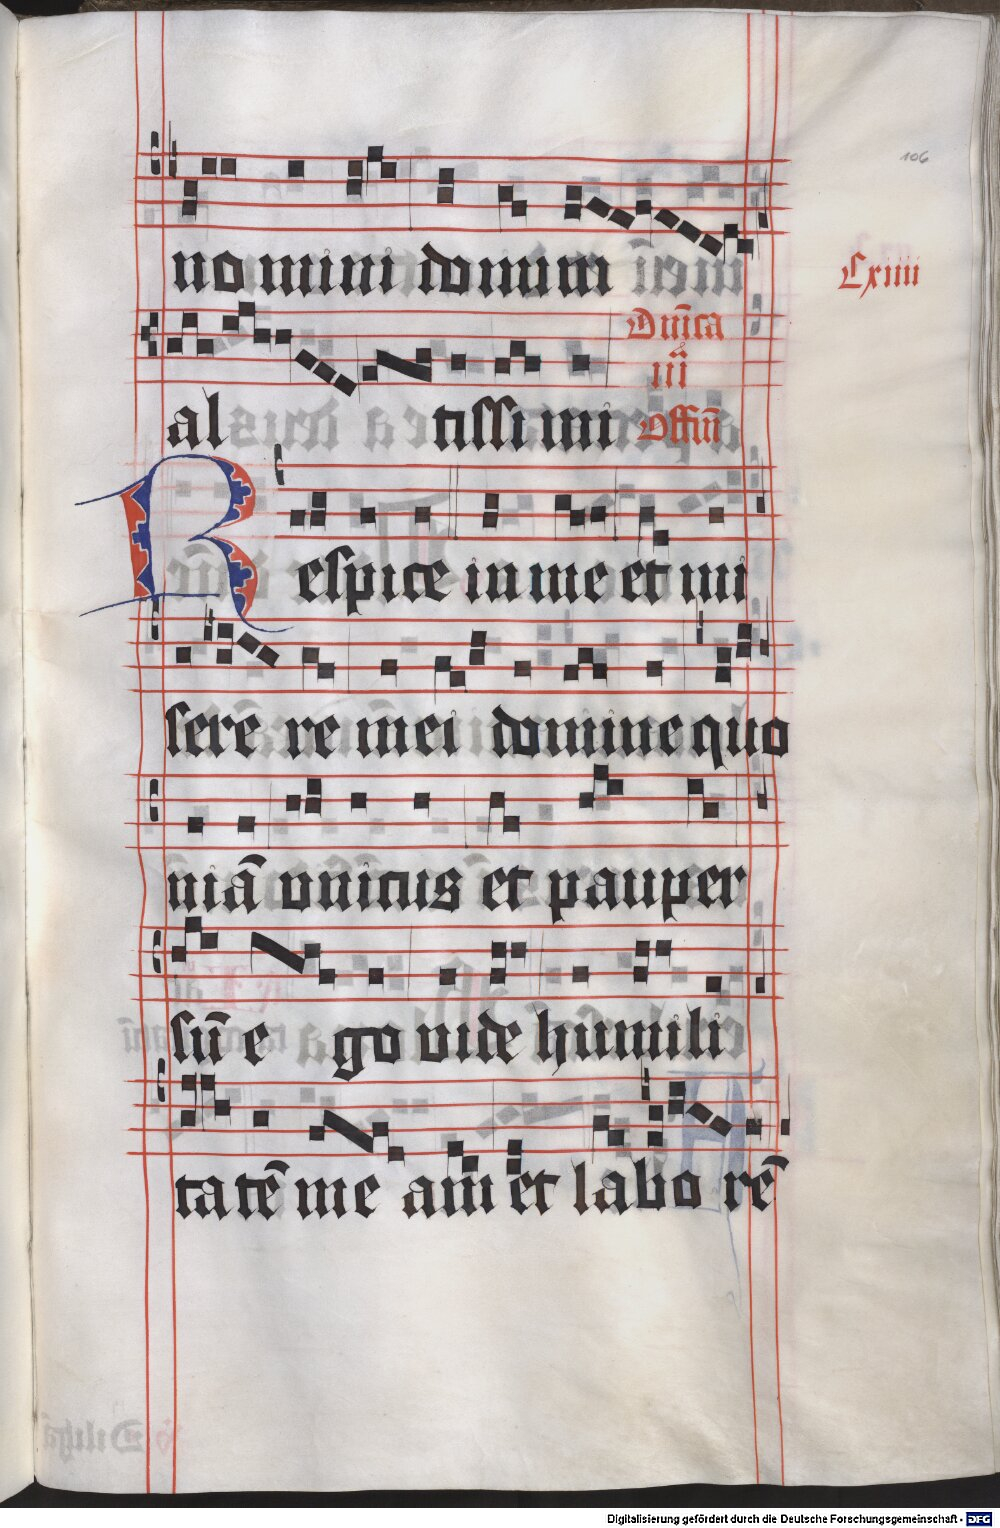 106
nomini domini
Cxiiii
Dn̄ica
iii
al tissimi Offm̄
Respice in me et mi
sere re mei domine quo
niā vnicus et pauper
sū e go vide humili
tatē me am et labo rē
Digitalisierung gefördert durch die Deutsche Forschungsgemeinschaft - DFG